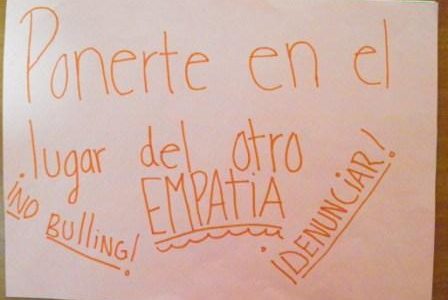 Ponerte en el
lugar del otro
EMPATiA
¡NO BullING!
¡DENUNCIAR!